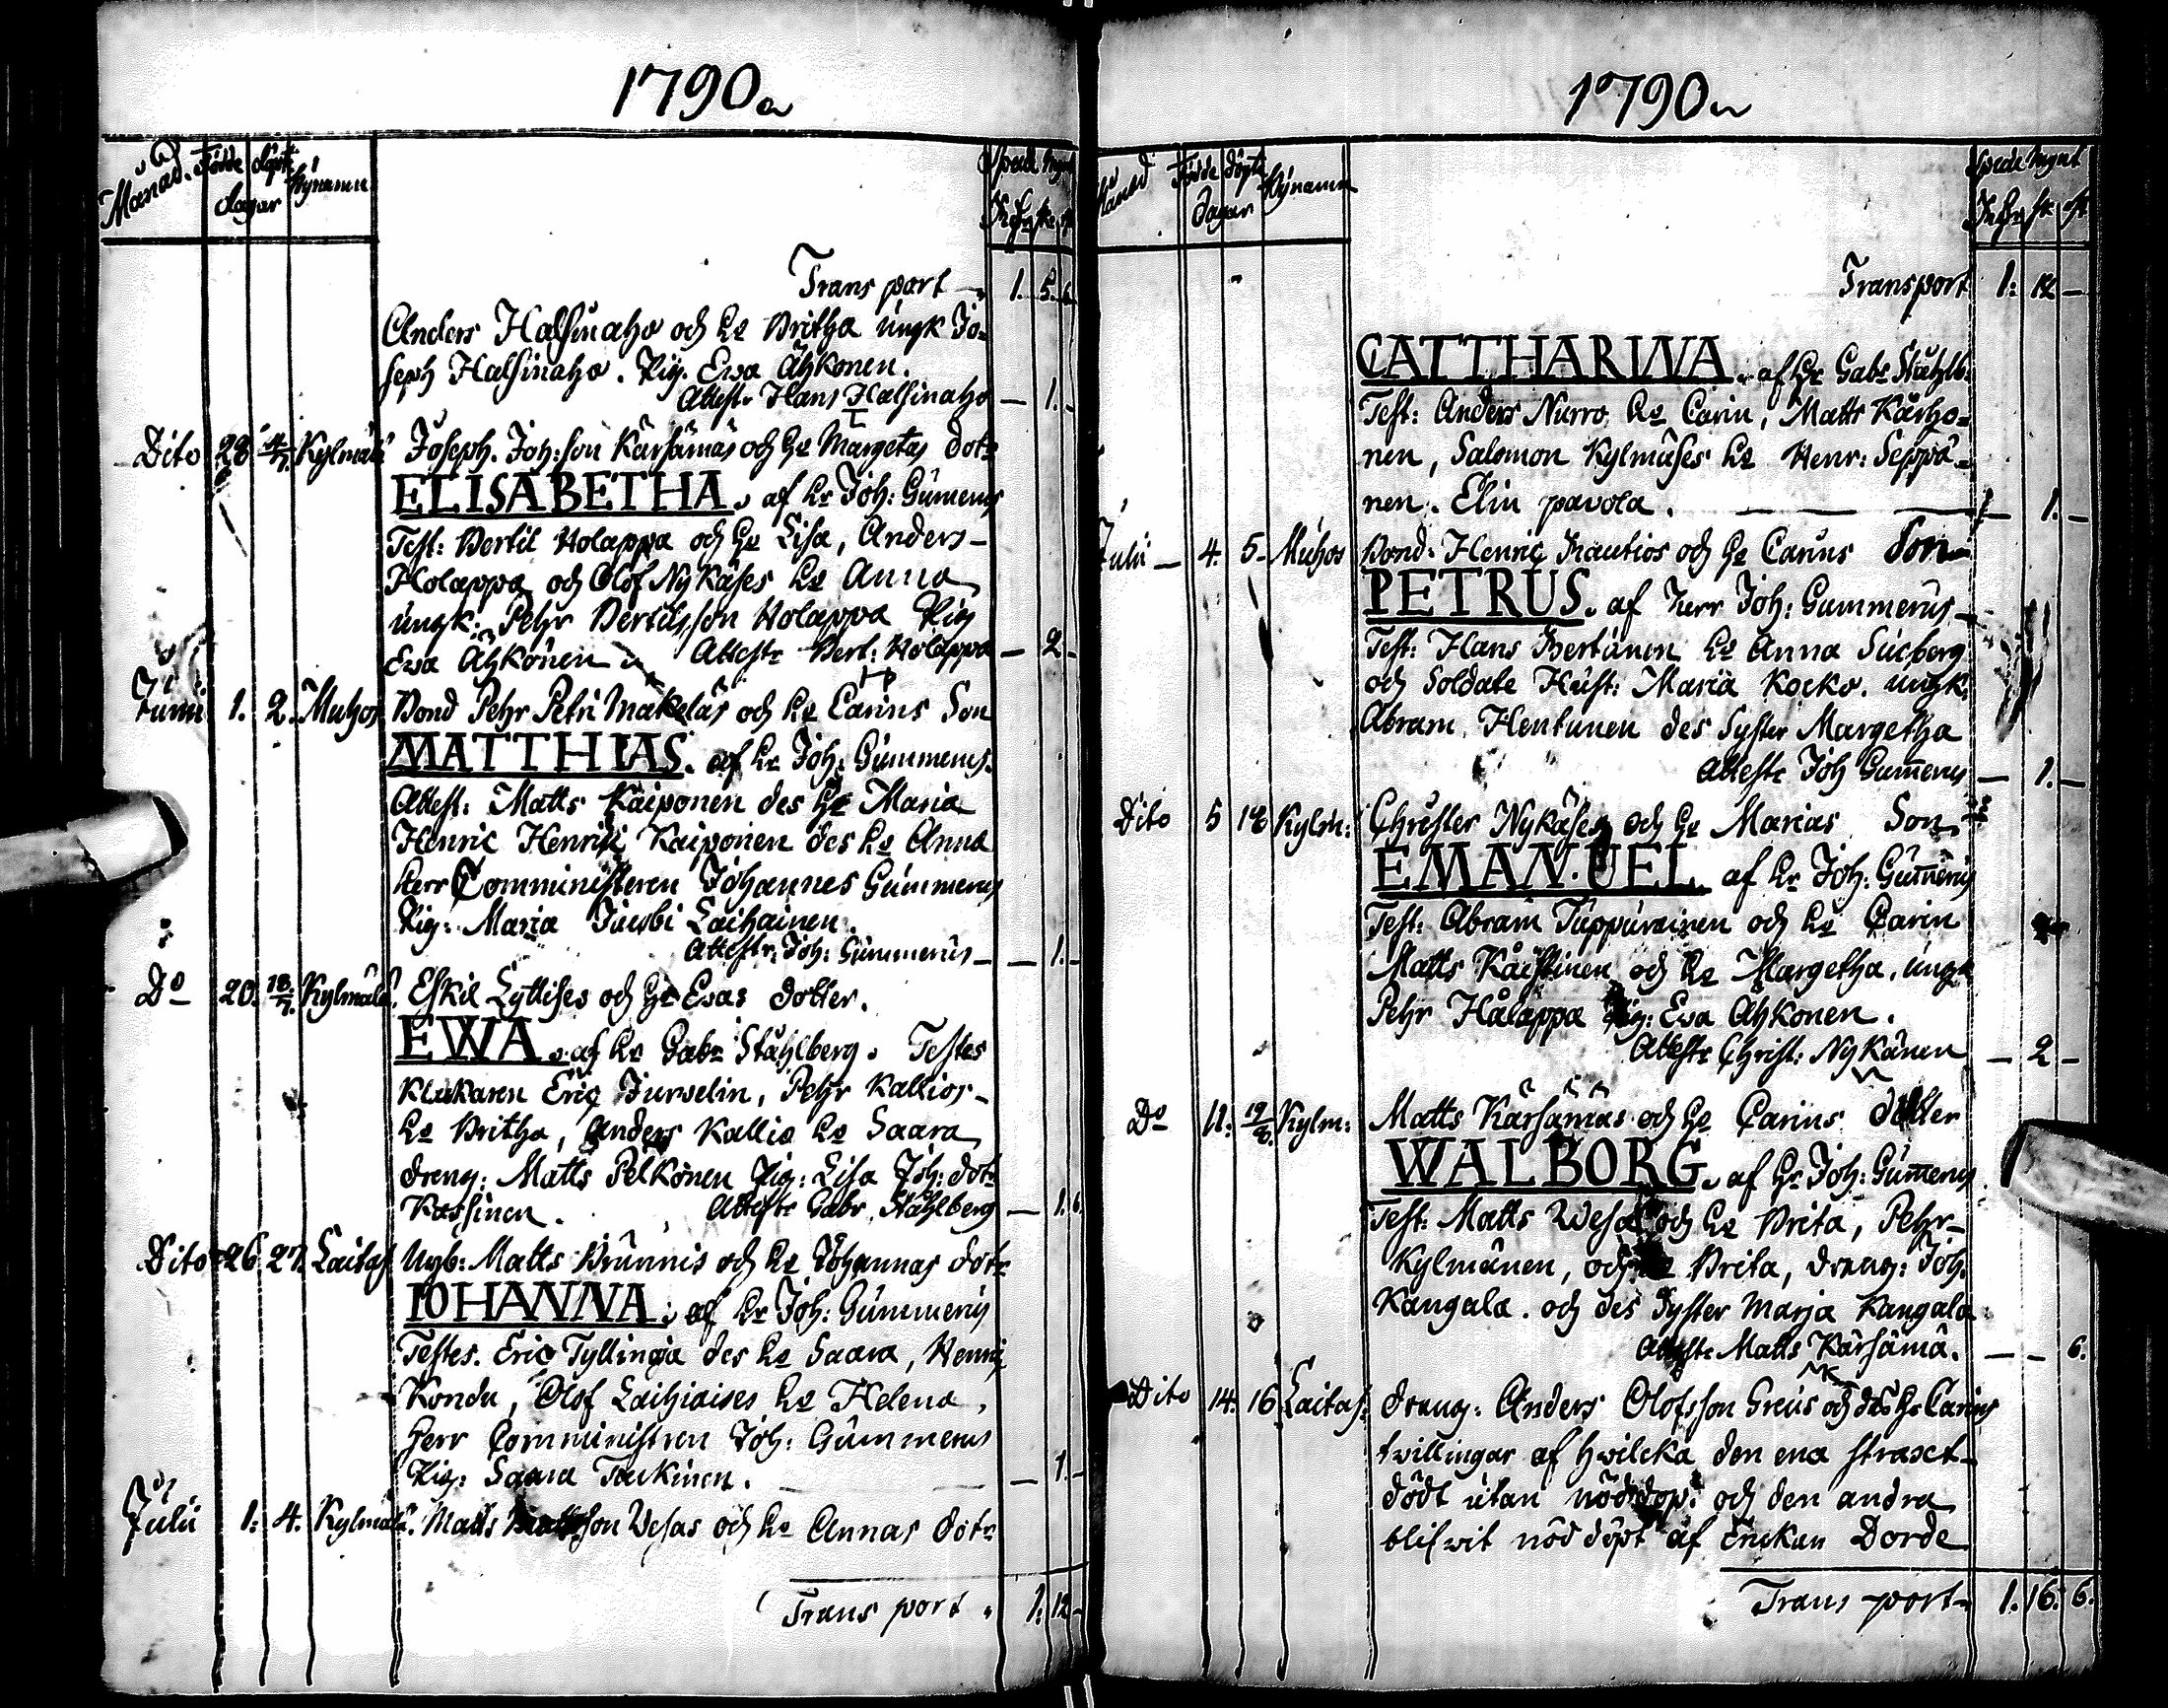 1790
Månad. Födde döpte Bynamn
dagar
Transport 1. 5. 6
Anders Halsinaho och h. Britha ungk Jo=
seph Halsinaho. Pig. Ewa Ahkonen.
Attest. Hans Halsinaho — 1. —
Dito 28 4/7 Kylmäl. Joseph. Joh: son Kärsämäs och h. Margetas dot.
ELISABETHA. af hr Joh: Gumerus
Test: Bertil Holappa och h. Lisa, Anders
Holappa och Olof Nykäses h. Anna
ungk: Pehr Bertilsson Holappa Pig
Ewa Ahkonen Attest. Bert: Holappa — 2 —
Junii 1. 2. Muhos Bond Pehr Petri Makelas och h. Carins Son
MATTHIAS. af hr Joh: Gummerus.
Attest: Matts Kaiponen des h. Maria
Henric Henriks Kaiponen des h. Anna
herr Comministeren Johannes Gummerus
Pig: Maria Jacobi Laihainen.
Attestr. Joh: Gummerus — 1. —
Do 20. 18/7. Kylmäl. Eskil Lyttises och h. Evas dotter.
EWA. af hr Gabr Ståhlberg. Testes
Klokaren Eric Jurvelin, Pehr Kallios
h. Britha, Anders Kallio h. Saara
dreng: Matts Pelkonen Pig: Lisa Joh: dot.
Kassinen. Attestr Gabr. Ståhlberg — 1. 6.
Dito 26. 27. Laitas. Nyb: Matts Brunnis och h. Johannas dotr
IOHANNA: af hr Joh: Gummerus
Testes. Eric Tyllinoja des h. Saara, Henric
Kondu, Olof Laihiaises h. Helena,
Herr Comministren Joh: Gummerus
Pig: Saara Tackinen. — 1. —
Julii 1. 4. Kylmäl. Matts son Vesas och h. Annas dotr
Transport. 1. 12 —
1790
Månad Födde döpte Bynamn
dagar
Transport 1. 12 —
CATTHARINA. af hr Gabr Ståhlb.
Test: Anders Nurro h. Carin, Matts Karho=
nen, Salomon Kylmäses h. Henr: Seppä=
nen. Elin pavola. — 1. —
Julii 4. 5. Muhos Bond: Henric Rautios och h. Carins Son
PETRUS. af herr Joh: Gummerus
Test: Hans Hertunen h. Anna Sucberg
och Soldate Hust: Maria Kocko. ungk:
Abram. Hentunen des Syster Margetha
Attestr Joh Gumerus — 1. —
Dito 5 18 Kylm: Christer Nykäses och h. Marias Son
EMANUEL af hr Joh: Gumerus
Test: Abram Tuppurainen och h. Carin
Matts Kaistinen och h. Margetha, ungk
Pehr Hålappa Pig: Ewa Ahkonen.
Attestr Christ: Nykänen — 2 —
Do 11. 19/8. Kylm: Matts Kärsämäs och h. Carins dotter
WALBORG. af hr Joh: Gumerus
Test: Matts Wesa och h. Brita, Pehr
Kylmänen, och h. Brita, dreng: Joh.
Kangala. och des Syster Marja Kangala
Attestr Matts Kärsämä. — — 6.
Dito 14. 16 Laitas: dreng: Anders Olofsson Greus och des h. Carins
twillingar af hwilcka den ena straxt
dödt utan nöddop: och den andra
blifwit nöd döpt af Enckan Dorde
Transport 1. 16. 6.